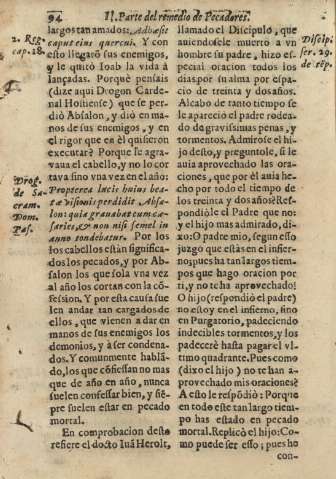 94 II. Parte del remedio de Pecadores.
largos tan amados: Adhæsit
caput eius quercui. Y con
esto llegarõ sus enemigos,
y le quitò Ioab la vida à
lançadas. Porquè pensais
(dize aqui Drogon Cardenal
Hostiense) que se perdiò
Absalon, y diò en manos
de sus enemigos, y en
el rigor que en èl quisieron
executar? Porque le agravaua
el cabello, y no lo cortava
sino vna vez en el año:
Propterea lucis huius beatæ
visionis perdidit Absalon:
quia grauabat cum cæsaries,
& non nisi semel in
anno tondebatur. Por los
los cabellos estàn significados
los pecados, y por Absalon
los que sola vna vez
al año los cortan con la cõfession.
Y por esta causa suelen
andar tan cargados de
ellos, que vienen a dar en
manos de sus enemigos los
demonios, y à ser condenados.
Y comunmente hablãdo,
los que cõfiessan no mas
que de año en año, nunca
suelen confessar bien, y siẽpre
suelen estar en pecado
mortal.
En comprobacion desto
refiere el docto Iuã Herolt,
2. Reg.
cap. 18.
Drog.
de Sacram.
Dom.
Pas.
llamado el Discipulo, que
auiendosele muerto a vn
hombre su padre, hizo especial
oracion todos los
dias por su anima por espacio
de treinta y dos años.
Alcabo de tanto tiempo se
le apareciò el padre rodeado
de gravissimas penas, y
tormentos. Admiròse el hijo
desto, y preguntole, si le
auia aprovechado las oraciones,
que por èl auia hecho
por todo el tiempo de
los treinta y dos años? Respondiòle
el Padre que no:
y el hijo mas admirado, dixo:
O padre mio, segun esso
juzgo que estàs en el infierno;
pues ha tan largos tiempos
que hago oracion por
ti, y no te ha aprovechado!
O hijo (respondiò el padre)
no estoy en el infierno, sino
en Purgatorio, padeciendo
indecibles tormentos, y los
padecerè hasta pagar el vltimo
quadrante. Pues como
(dixo el hijo) no te han aprovechado
mis oraciones?
A esto le respõdiò: Porque
en todo este tan largo tiempo
has estado en pecado
mortal. Replicò el hijo: Como
puede ser esso; pues he
con-
Discip.
ser. 29.
de tẽp.